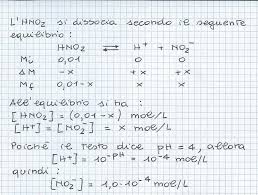 L'HNO2 si dissocia secondo il seguente
equilibrio :
HNO2 ⇌ H+ + NO2-
Mi 0,01 0 0
ΔM -x +x +x
Mf 0,01-x x x
All'equilibrio si ha :
[HNO2] = (0,01-x) mol/L
[H+] = [NO2-] = x mol/L
Poiché il testo dice pH = 4, allora
[H+] = 10-pH = 10-4 mol/L
quindi :
[NO2-] = 1,0·10-4 mol/L